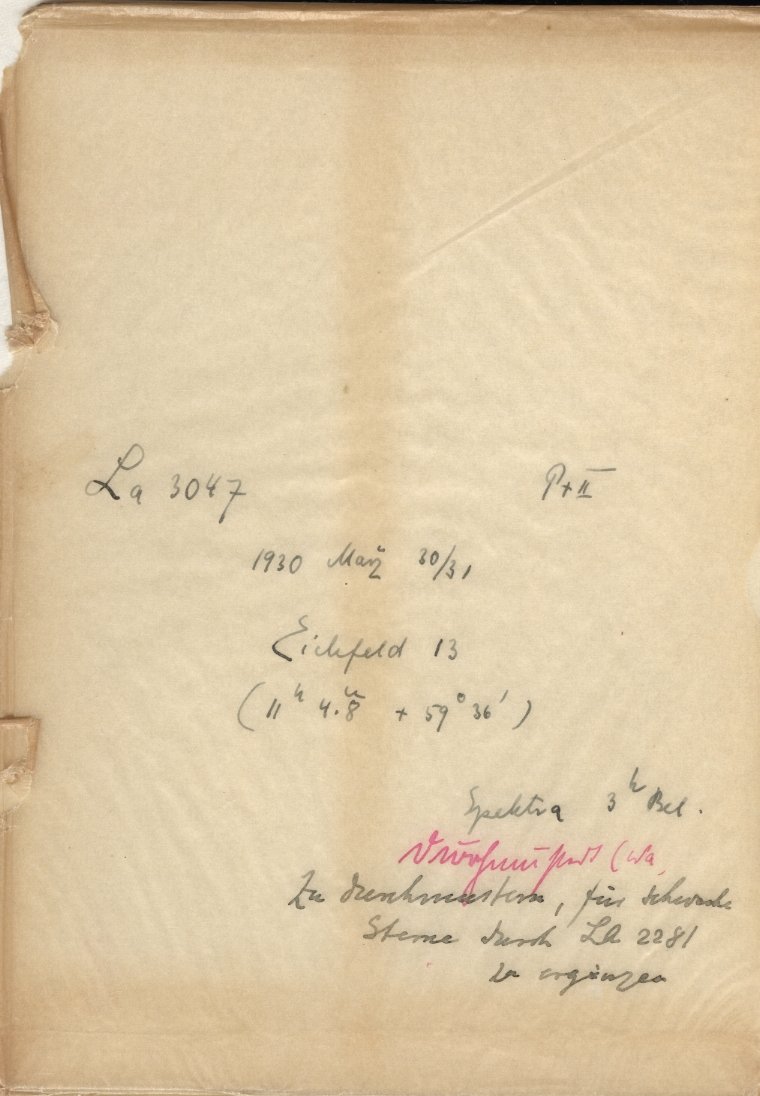 La 3047 P+II
1930 März 30/31
Eichfeld 13
(11ʰ 4.ᵐ8 + 59° 36')
Spektra 3ʰ Bel.
Durchmustert (Wa
Zu durchmustern, für schwache
Sterne durch LA 2281
zu ergänzen